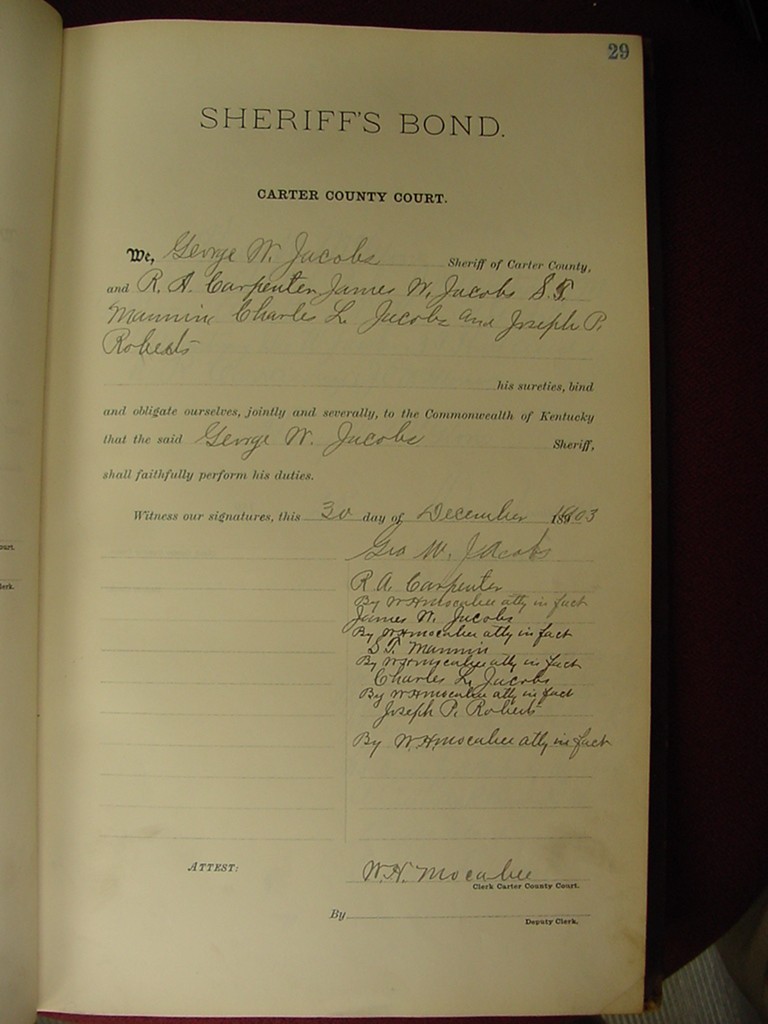 29
SHERIFF'S BOND.
CARTER COUNTY COURT.
We, George W. Jacobs Sheriff of Carter County,
and R. A. Carpenter James W. Jacobs S. T.
Mannin Charles L. Jacobs and Joseph P.
Roberts
his sureties, bind
and obligate ourselves, jointly and severally, to the Commonwealth of Kentucky
that the said George W. Jacobs Sheriff,
shall faithfully perform his duties.
Witness our signatures, this 30 day of December 1903
Geo W. Jacobs
R A. Carpenter
By W H Mocabee atty in fact
James W. Jacobs
By W H Mocabee atty in fact
S T. Mannin
By W H Mocabee atty in fact
Charles L. Jacobs
By W H Mocabee atty in fact
Joseph P. Roberts
By W. H. Mocabee atty in fact
ATTEST: W. H. Mocabee
Clerk Carter County Court.
By
Deputy Clerk.
ourt.
lerk.